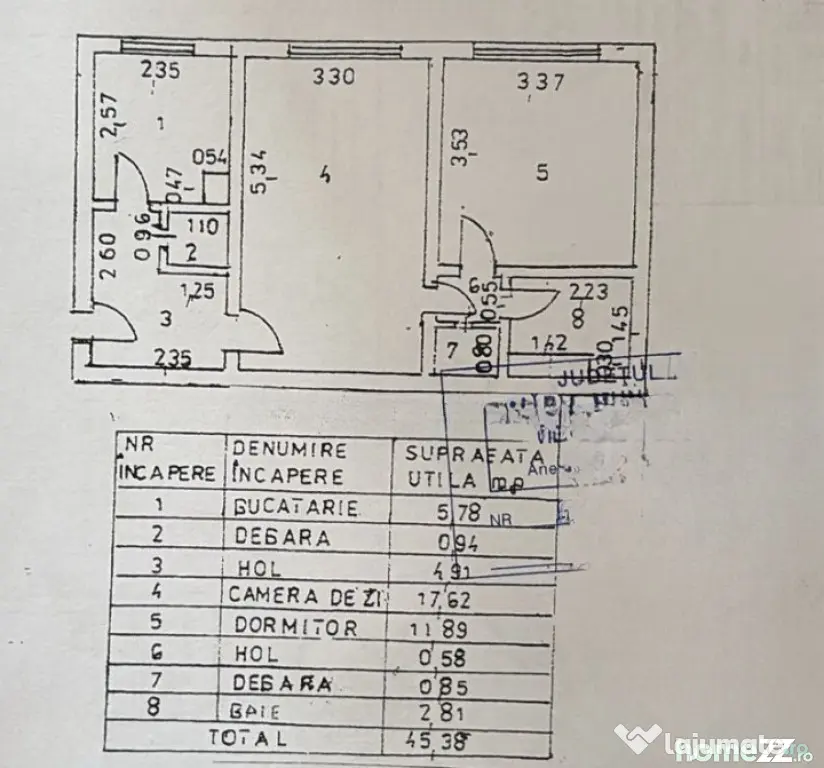 235
330
337
2,57
1
5,34
4
3,53
5
054
047
096
110
2
2 60
1,25
3
235
6
0,55
223
8
1,45
7
080
1,42
0,30
JUDETUL
NR
INCAPERE
DENUMIRE
INCAPERE
SUPRAFATA
UTILA mp
Ane
NR
1 BUCATARIE 5,78
2 DEBARA 0,94
3 HOL 4,91
4 CAMERA DE ZI 17,62
5 DORMITOR 11,89
6 HOL 0,58
7 DEBARA 0,85
8 BAIE 2,81
TOTAL 45,38
lajumate.ro
homezz.ro